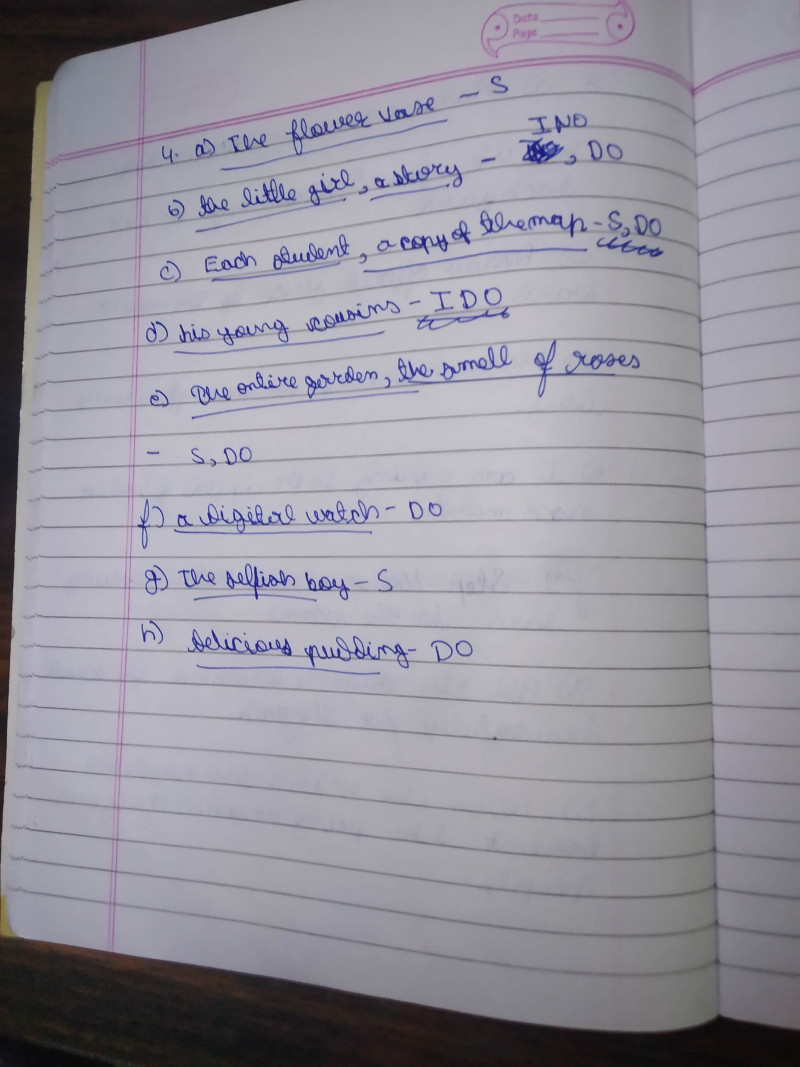 Date
Page
4. a) The flower vase - S
INO
b) the little girl, a story - , DO
c) Each student, a copy of the map - S, DO
d) his young cousins - I DO
e) The entire garden, the smell of roses
- S, DO
f) a digital watch - DO
g) The selfish boy - S
h) delicious pudding - DO